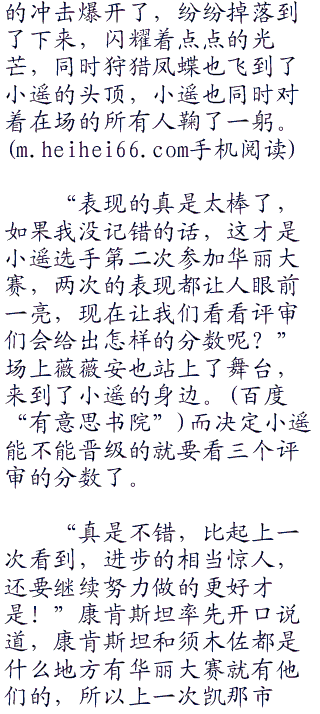 的冲击爆开了，纷纷掉落到
了下来，闪耀着点点的光
芒，同时狩猎凤蝶也飞到了
小遥的头顶，小遥也同时对
着在场的所有人鞠了一躬。
(m.heihei66.com手机阅读)
“表现的真是太棒了，
如果我没记错的话，这才是
小遥选手第二次参加华丽大
赛，两次的表现都让人眼前
一亮，现在让我们看看评审
们会给出怎样的分数呢？”
场上薇薇安也站上了舞台，
来到了小遥的身边。(百度
“有意思书院”)而决定小遥
能不能晋级的就要看三个评
审的分数了。
“真是不错，比起上一
次看到，进步的相当惊人，
还要继续努力做的更好才
是！”康肯斯坦率先开口说
道，康肯斯坦和须木佐都是
什么地方有华丽大赛就有他
们的，所以上一次凯那市